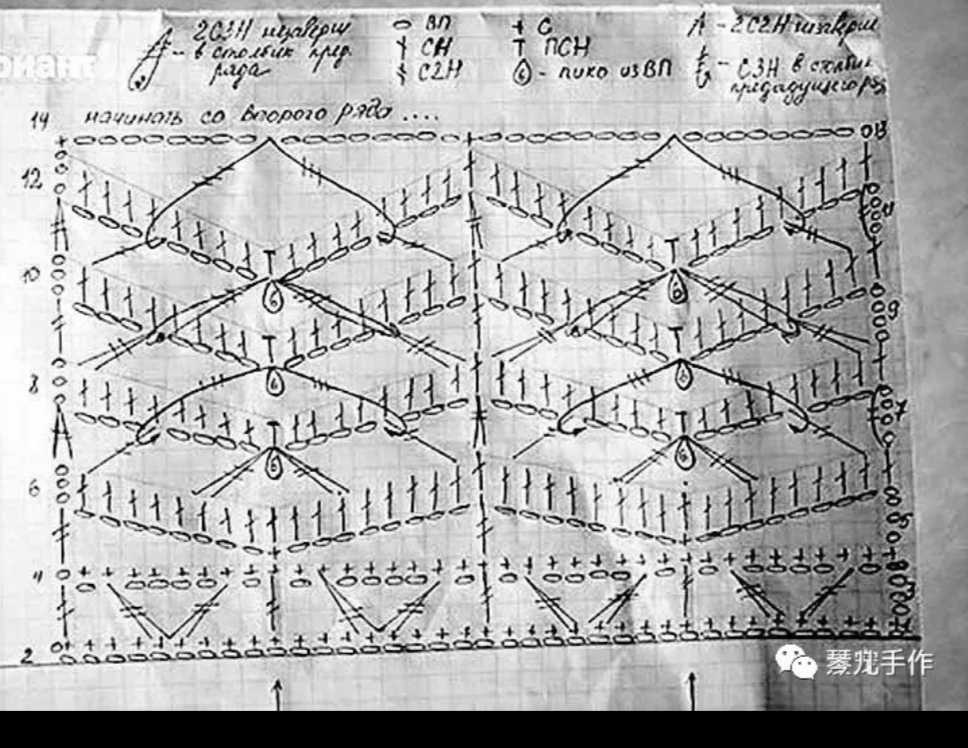 2С3Н незаверш
- в столбик пред.
ряда
ВП
СН
С2Н
С
ПСН
6 - пико из ВП
- 2С2Н незаверш
- С3Н в столбик
предыдущего ряд
риант
14 начинать со второго ряда ....
13
12
11
10
9
8
7
6
5
4
3
2
6 6
6 6
6 6
琴宠手作